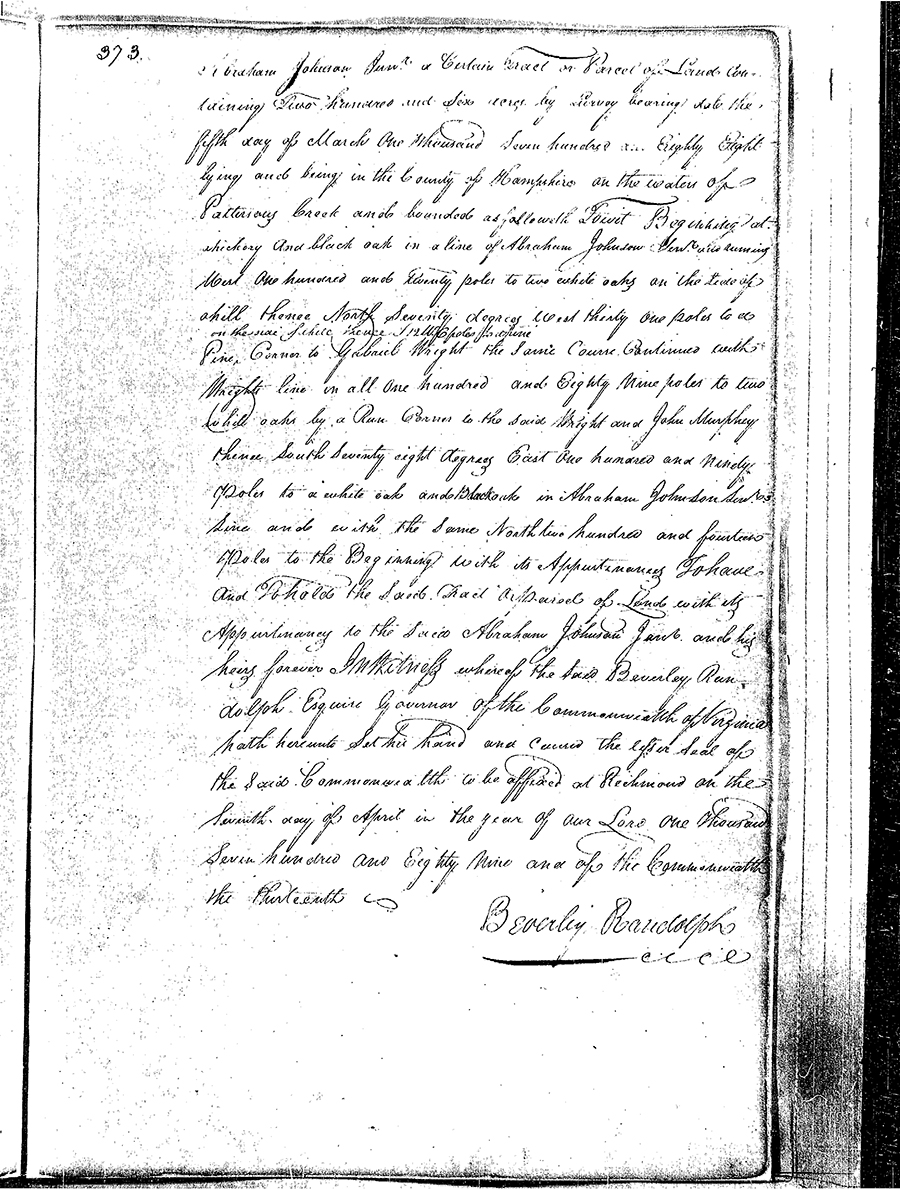 373.
Abraham Johnson Junr. a Certain Tract or Parcel of Land Con-
taining Two hundred and Six acres by survey bearing date the
fifth day of March One thousand Seven hundred and Eighty Eight
lying and being in the County of Hampshire on the waters of
Pattersons Creek and bounded as followeth Towit Beginning at
hickory and black oak in a line of Abraham Johnson Senr. and running
West One hundred and Twenty poles to two white oaks on the side of
a hill thence North Seventy degrees west thirty one poles to a
on the side of hill thence poles to a pine
Pine, Corner to Gabriel Wright the Same Course Continued with
Wrights line in all One hundred and Eighty Nine poles to two
White oaks by a Run Corner to the said Wright and John Murphey
thence South Seventy eight degrees East One hundred and Ninety
Poles to a white oak and Black oak in Abraham Johnson Senr.
line and with the same North two hundred and fourteen
Poles to the Beginning with its Appurtenances To have
and To hold the said Tract or Parcel of Land with its
Appurtenances to the said Abraham Johnson Junr. and his
heirs forever In Witness whereof the said Beverley Ran-
dolph Esquire Governor of the Commonwealth of Virginia
hath hereunto Set his hand and caused the lesser Seal of
the said Commonwealth to be affixed at Richmond on the
Seventh day of April in the year of our Lord one thousand
Seven hundred and Eighty Nine and of the Commonwealth
the thirteenth
Beverley Randolph